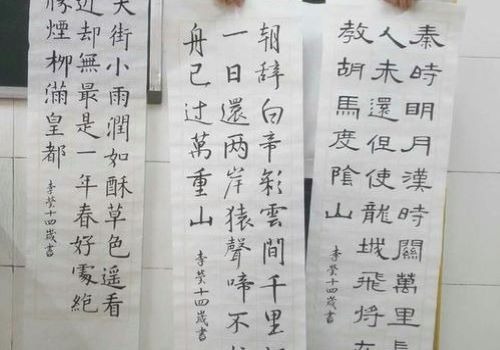 秦時明月漢時關萬里長
人未還但使龍城飛將在
教胡馬度陰山
李 十四歲書
朝辭白帝彩雲間千里
一日還两岸猿聲啼不
舟已過萬重山
李 十四歲書
天街小雨潤如酥草色遥看
近却無最是一年春好處絕
勝煙柳滿皇都
李 十四歲書